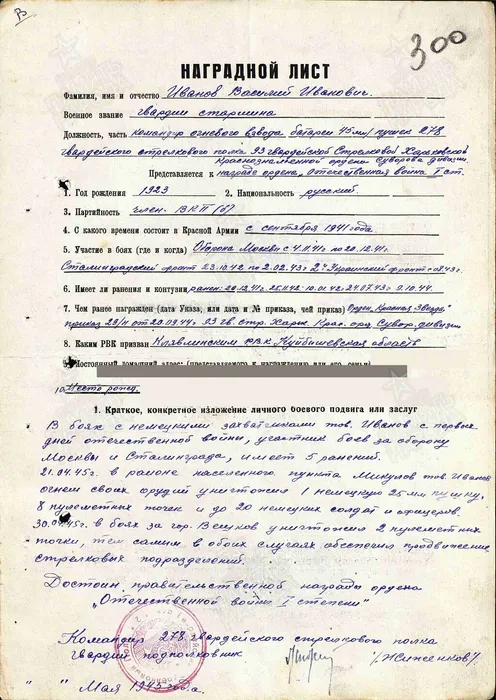 В
300
НАГРАДНОЙ ЛИСТ
Фамилия, имя и отчество Иванов Василий Иванович.
Военное звание гвардии старшина
Должность, часть командир огневого взвода батареи 45 мм пушек 278
гвардейского стрелкового полка 93 гвардейской Стрелковой Харьковской
Краснознаменной ордена Суворова дивизии
Представляется к награде ордена „Отечественная война I ст.
1. Год рождения 1923 2. Национальность русский.
3. Партийность член ВКП(б)
4. С какого времени состоит в Красной Армии с сентября 1941 года
5. Участие в боях (где и когда) Оборона Москвы с 4.11.41г по 20.12.41г.
Сталинградский фронт 23.10.42 по 2.02.43г 2й Украинский фронт с 08.43г.
6. Имеет ли ранения и контузии ранен: 20.12.41г 25.11.42г. 10.01.43г. 24.07.43г 9.10.44.
7. Чем ранее награжден (дата Указа, или дата и № приказа, чей приказ) Орден „Красная Звезда"
приказ 29/н от 20.09.44г. 93 гв. стр. Харьк. Крас. орд. Сувор. дивизии
8. Каким РВК призван РВК Куйбышевская область
9. Постоянный домашний адрес: (представляемого к награждению или его семьи)
10 Место рожд.
1. Краткое, конкретное изложение личного боевого подвига или заслуг
В боях с немецкими захватчиками тов. Иванов с первых
дней отечественной войны, участник боев за оборону
Москвы и Сталинграда, имеет 5 ранений.
21.04.45г. в районе населенного пункта Микулов тов. Иванов
огнем своих орудий уничтожил 1 немецкую 25 мм пушку,
8 пулеметных точек и до 20 немецких солдат и офицеров.
30.04.45г. в боях за гор. уничтожил 2 пулеметных
точки, тем самым в обоих случаях обеспечил продвижение
стрелковых подразделений.
Достоин правительственной награды ордена
„Отечественной войны I степени"
Командир 278 гвардейского стрелкового полка
гвардии подполковник /Жиженков/
" " Мая 1945 года.